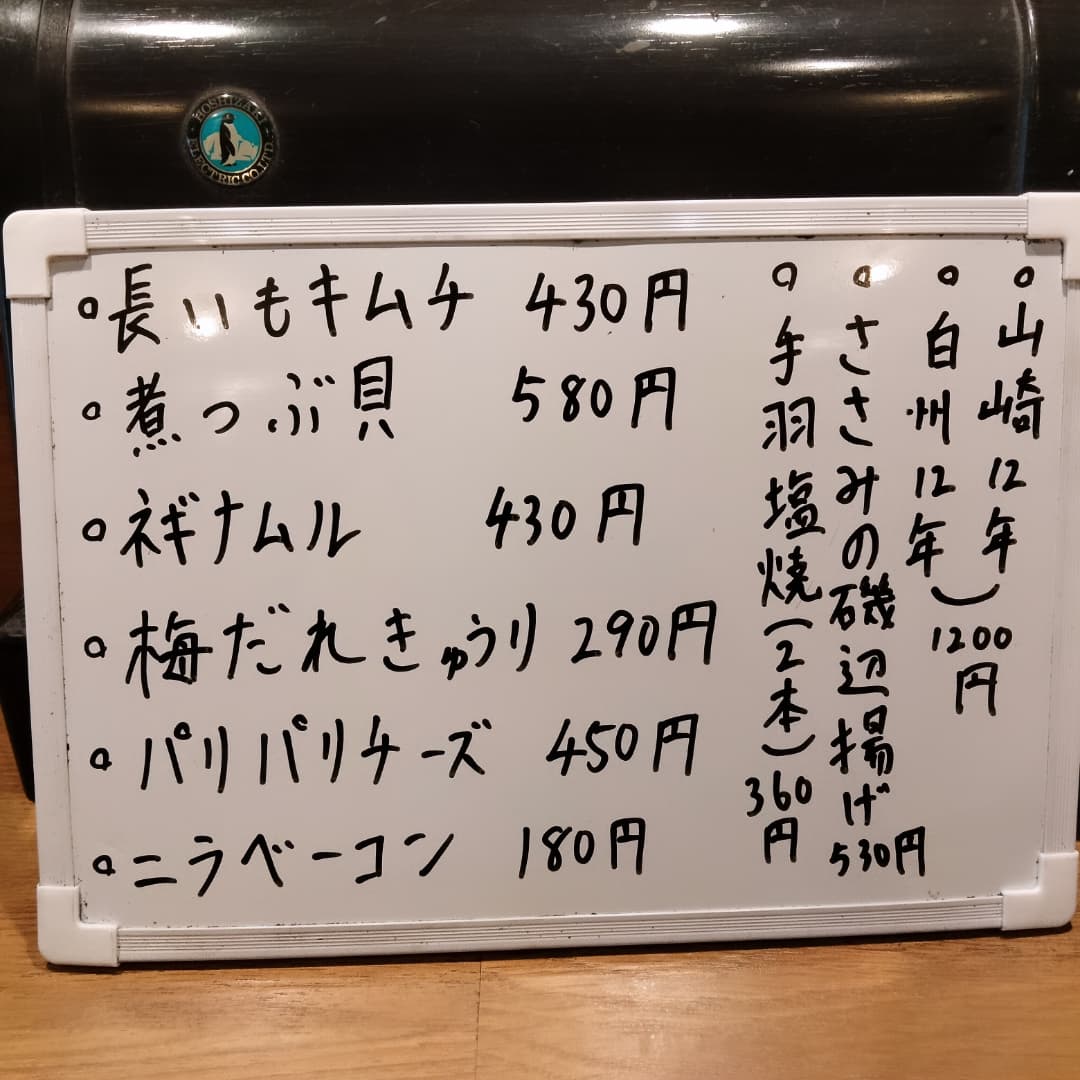 HOSHIZAKI ELECTRIC CO.,LTD.
◦長いもキムチ 430円
◦煮つぶ貝 580円
◦ネギナムル 430円
◦梅だれきゅうり 290円
◦パリパリチーズ 450円
◦ニラベーコン 180円
◦山崎12年
◦白州12年) 1200円
◦ささみの磯辺揚げ 530円
◦手羽塩焼(2本) 360円